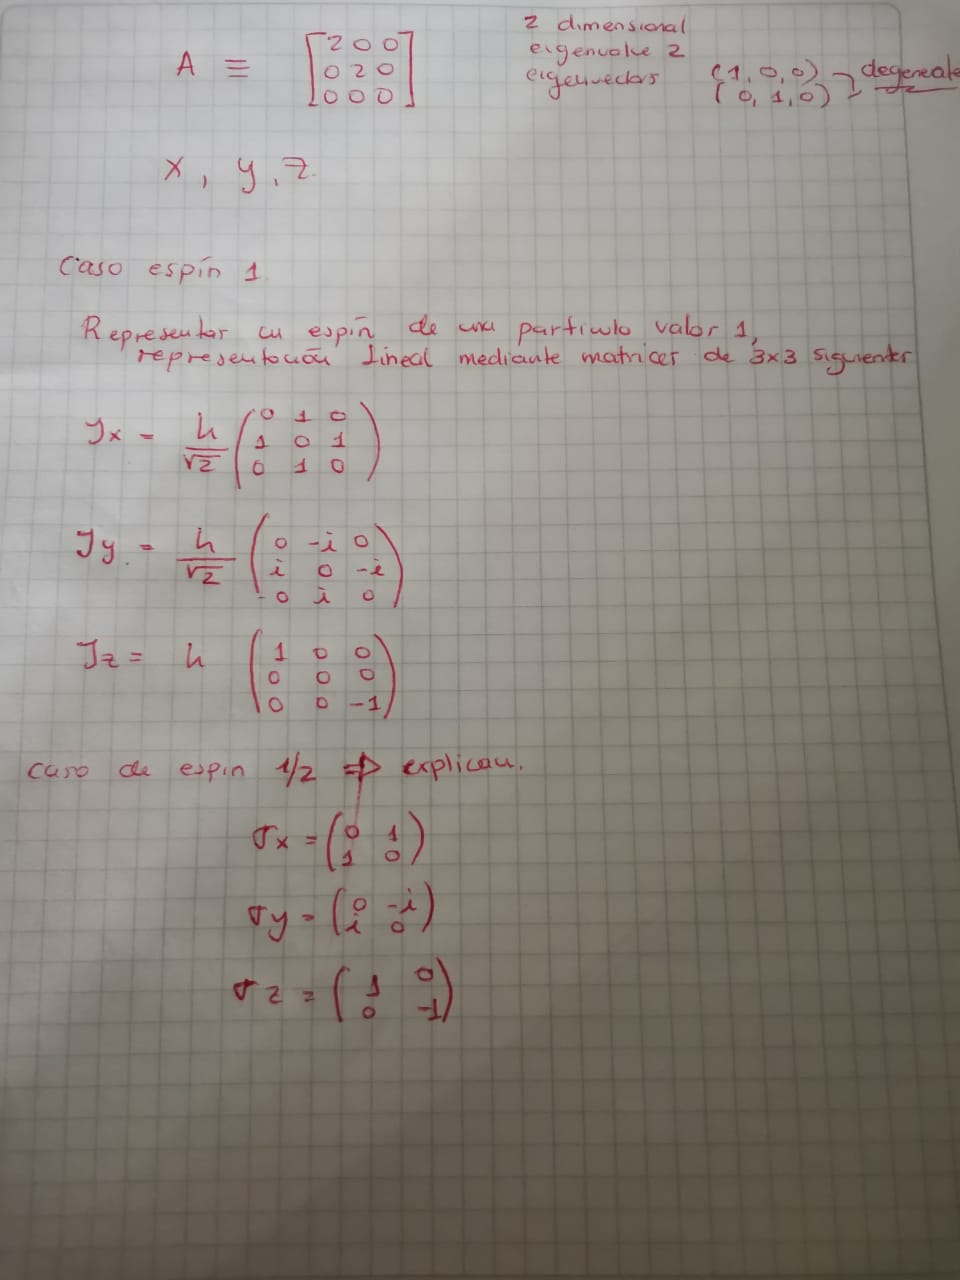 A ≡ [2 0 0
0 2 0
0 0 0]
2 dimensional
eigenvalue 2
eigenvectors (1, 0, 0)
(0, 1, 0)
degenerate
x, y, z.
Caso espín 1
Representar un espín de una partícula valor 1,
representación lineal mediante matrices de 3x3 siguientes
Jx = h/√2 (0 1 0
1 0 1
0 1 0)
Jy = h/√2 (0 -i 0
i 0 -i
0 i 0)
Jz = h (1 0 0
0 0 0
0 0 -1)
caso de espin 1/2 ⇒ explicau.
σx = (0 1
1 0)
σy = (0 -i
i 0)
σz = (1 0
0 -1)